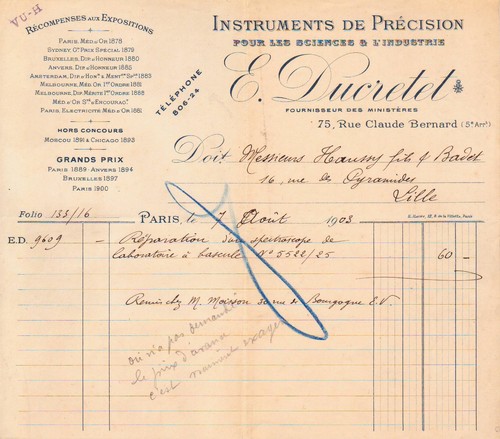 VU-H
RÉCOMPENSES AUX EXPOSITIONS
PARIS. MÉD. D'OR 1878
SYDNEY. Gd PRIX SPÉCIAL 1879
BRUXELLES. DIP. D'HONNEUR 1880
ANVERS. DIP. D'HONNEUR 1885
MELBOURNE. MÉD. OR 1er ORDRE 1881
MELBOURNE. DIP. MÉRITE 1er ORDRE 1888
PARIS. ELECTRICITÉ MÉD. OR 1881
HORS CONCOURS
MOSCOU 1891 & CHICAGO 1893
GRANDS PRIX
PARIS 1889 ANVERS 1894
BRUXELLES 1897
PARIS 1900
TÉLÉPHONE
806-24
INSTRUMENTS DE PRÉCISION
POUR LES SCIENCES & L'INDUSTRIE
E. Ducretet
FOURNISSEUR DES MINISTÈRES
75, RUE CLAUDE BERNARD (5e ARRt)
Doit Messieurs fils & Badet
16, rue des Pyramides
Lille
Folio 133/16
PARIS, le 7 Août 1903
E.D. 9609 - Réparation d'un spectroscope de
laboratoire à bascule No 5522/25 60 -
Remis chez M. 30 rue de Bourgogne E.V.
on n'a pas demandé
le prix d'avance
c'est vraiment exagéré